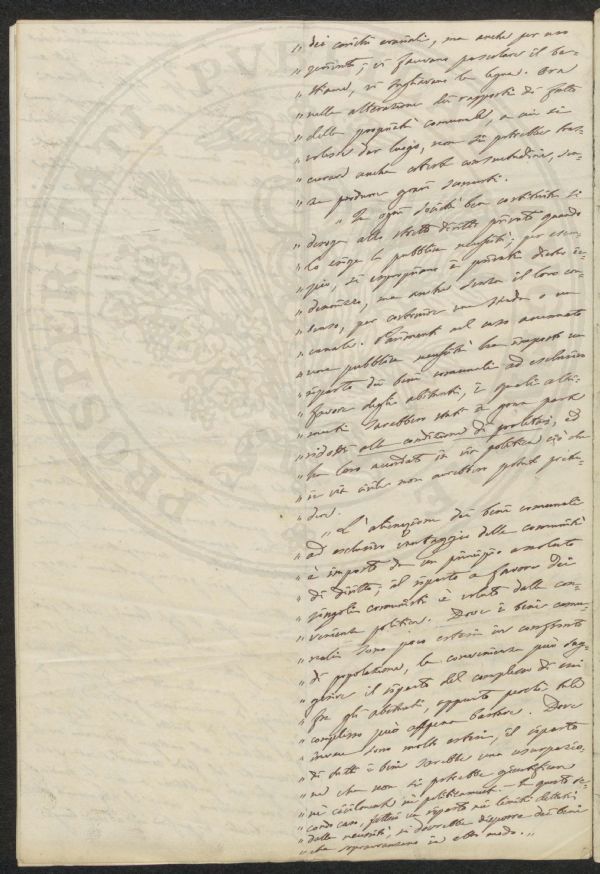 „ dei carichi erariali, ma anche per uso
„ gratuito; vi facevano pascolare il be=
„ stiame, vi tagliavano la legna. Ora
„ nella alterazione dei rapporti di fatto
„ della proprietà comunale, a cui si
„ volesse dar luogo, non si potrebbe tras=
„ curare anche codeste consuetudini, sen=
„ za perdurre gravi
„ „ In ogni società ben costituita si
„ deroga allo stretto diritto privato quando
„ lo esige la pubblica necessità; per esem=
„ pio, si espropriano i privati dietro in=
„ dennizzo, ma anche senza il loro con=
„ senso, per costruire una strada o un
„ canale. Parimenti nel caso accennato
„ una pubblica necessità ha imposto un
„ riparto dei beni comunali ad esclusivo
„ favore degli abitanti, i quali altri=
„ menti sarebbero stati in gran parte
„ ridotti alla condizione di proletari, ed
„ ha loro accordato in via politica ciò che
„ in via civile non avrebbero potuto preten=
„ dere.
„ „ L'alienazione dei beni comunali
„ ad esclusivo vantaggio delle comunità
„ è imposta da un principio assoluto
„ di diritto; il riparto a favore dei
„ singoli comunisti è voluto dalla con=
„ venienza politica. Dove i beni comu=
„ nali sono poco estesi in confronto
„ di popolazione, la convenienza può sug=
„ gerire il riparto del complesso di essi
„ fra gli abitanti, appunto perchè tale
„ complesso può appena bastare. Dove
„ invece sono molto estesi, il riparto
„ di tutti i beni sarebbe una usurpazio=
„ ne che non si potrebbe giustificare
„ nè civilmente nè politicamente. In questo se=
„ condo caso, fatto un riparto nei limiti dettati
„ dalla necessità, si dovrebbe disporre dei beni
„ che sopravanzano in altro modo. „